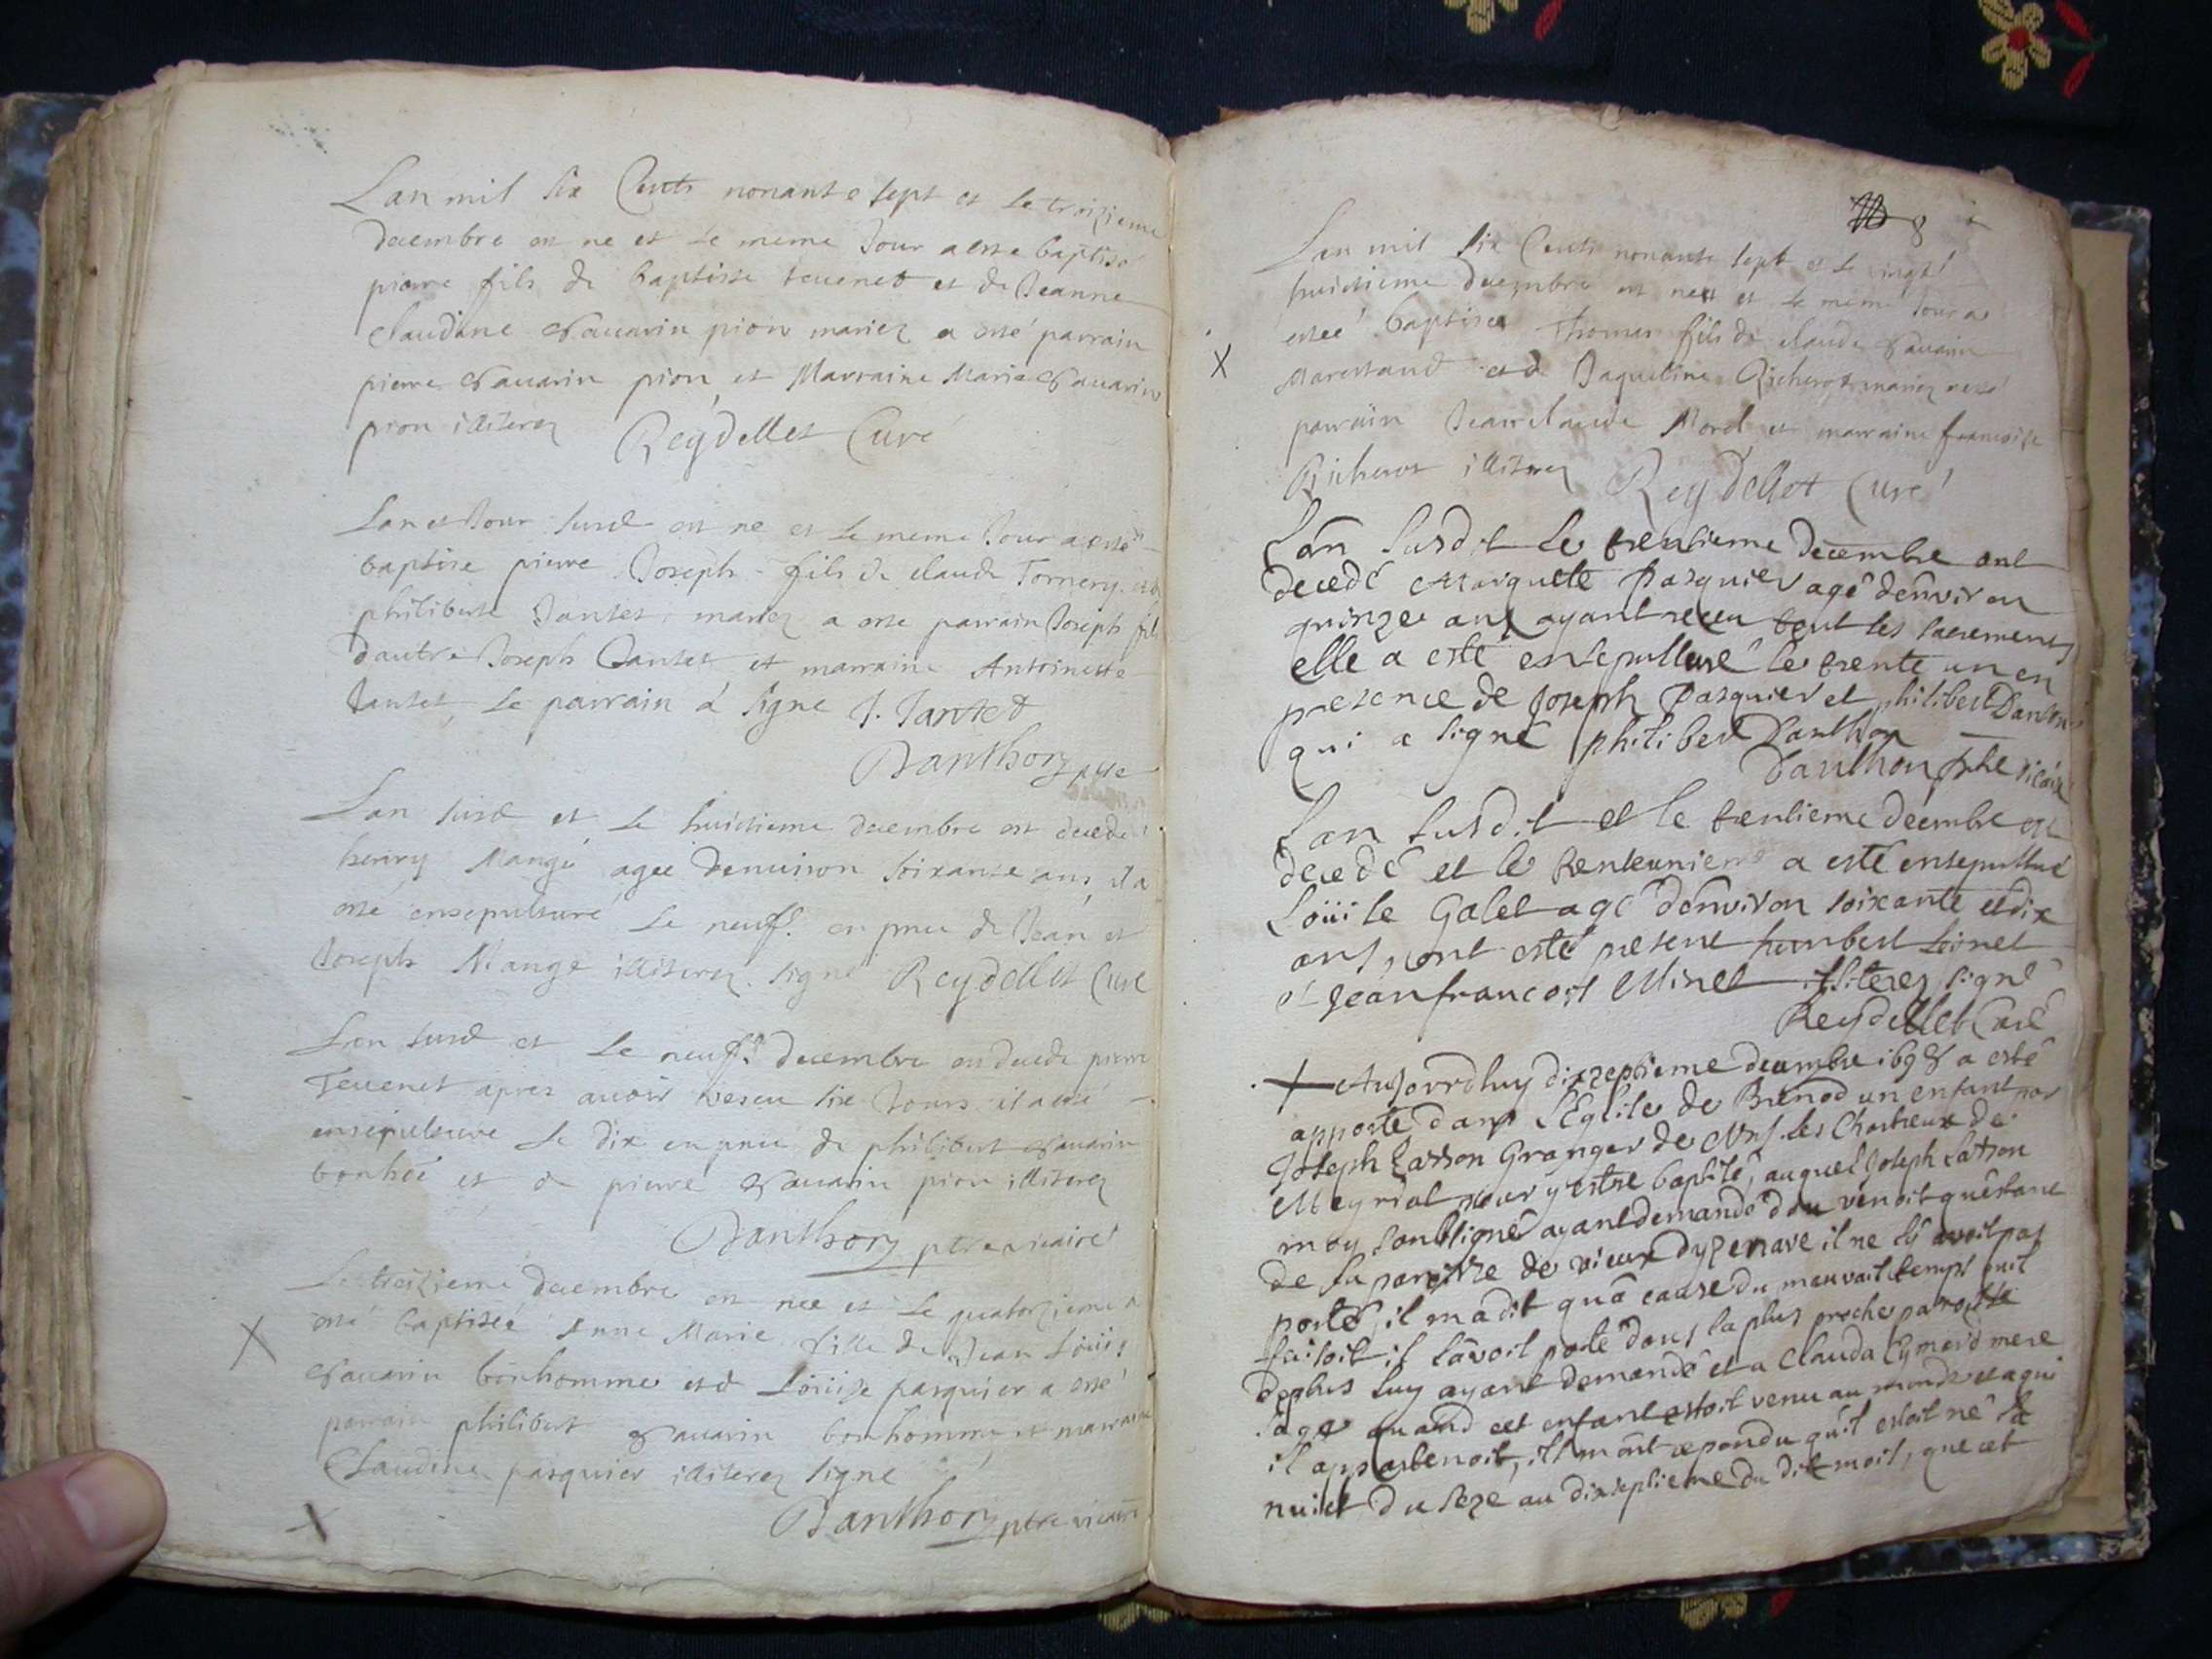 Lan mil six Cents nonante sept et le troizieme
decembre est ne et le meme Jour a esté baptisé
pierre fils de baptiste teuenet et de Jeanne
Claudine Sauarin pion mariez a esté parrain
pierre Sauarin pion et Marraine Marie Sauarin
pion illiterez Reydellet Curé
Lan et Jour susd est ne et le meme Jour a esté
baptise pierre Joseph fils de claude Tornery
philiberte Jantet mariez a este parrain Joseph fils
dautre Joseph Jantet et marraine Antoinette
Jantet, le parrain a signé J. Jantet
Danthon ptre
Lan susd et le huictieme decembre est decedé
henry Mange agee denuiron soixante ans il a
esté ensepulturé le neuf.e en pnce de Jean et
Joseph Mange illiterez signé Reydellet Curé
Lan susd et le neuf.e decembre est decede pierre
Teuenet apres auoir vescu six Jours il a esté
ensepulturé le dix en pnce de philibert Sauarin
bonhõe et de pierre Sauarin pion illiterez
Danthon ptre vicaire
Le treizieme decembre est nee et le quatorzieme a
esté baptiséé Anne Marie fille de Jean Loüis
Sauarin bonhomme et d Loüise pasquier a esté
parrain philibert Sauarin bonhomme et marraine
Claudine pasquier illiterez signé
Danthon ptre vicaire
8
Lan mil six Cents nonante sept et le vingt
huictieme decembre est ne et le meme Jour a
esteé baptisé Thomas fils de claude Sauarin
Marestand et d Jaqueline Richerot mariez
parrain Jean claude Morel et marraine francoise
Richerot illiterez Reydellet Curé
L'an susdit le trentieme decembre est
decedé Marguete Pasquier agé d'environ
quinze ans ayant receu tout les sacrements
elle a esté ensepulturé le trente un en
presence de Joseph Pasquier et philibert Danthon
qui a signé philibert Danthon
Danthon ptre vicaire
Lan susdit et le trentieme decembre est
decedé et le trenteunieme a esté ensepulturé
Loüise Galet agé d'environ soixante et dix
ans, ont esté present humbert
et Jean francois Minet illiterez signé
Reydellet Curé
Aujourdhuy dixseptieme decembre 1698 a esté
apporté dans l'Eglise de Brenod un enfant par
Joseph Catson Granger de Mrs les Chartreux de
Meyriat pour y estre baptisé, auquel Joseph Catson
moy soubsigné ayant demandé dou venoit quéstant
de la paroisse de vieux dyzenave il ne ly avoit pas
porté, il m'a dit qu'a cause du mauvait temps quil
faisoit il l'avoit porté dans la plus proche paroisse
deplus luy ayant demandé et a Clauda Eymard mere
sage quand cet enfant estoit venu au monde et a qui
il appartenoit, ils mont repondu qu'il estoit né la
nuict du seze au dixseptieme du dit moit, que cet